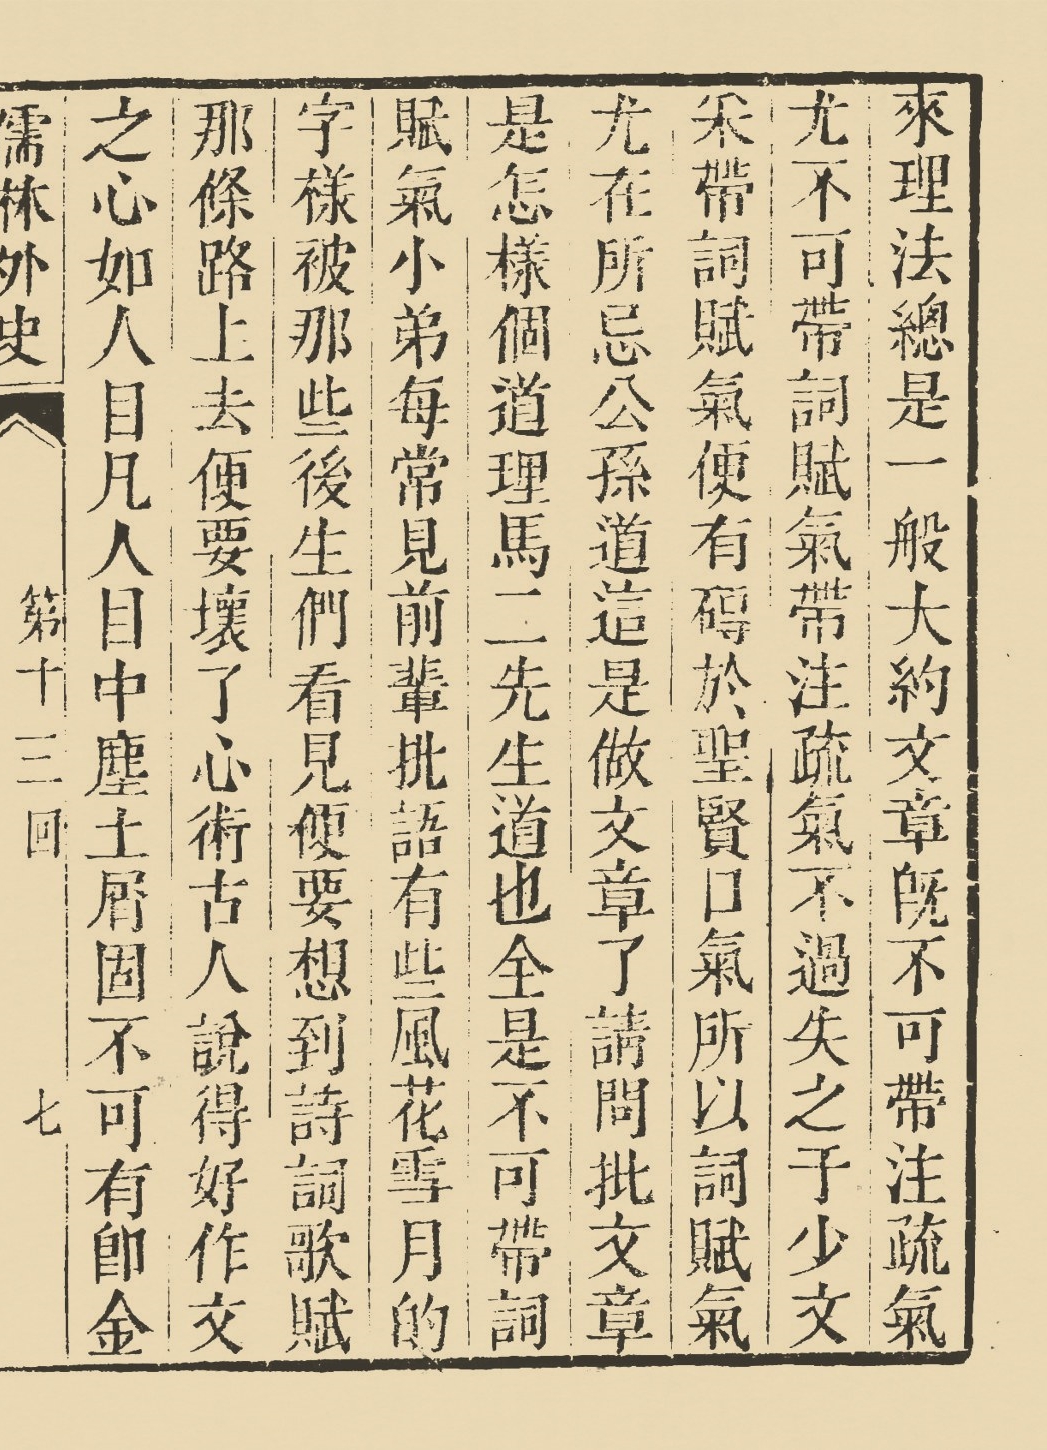 來理法總是一般大約文章旣不可帶注疏氣
尤不可帶詞賦氣帶注疏氣不過失之于少文
采帶詞賦氣便有碍於聖賢口氣所以詞賦氣
尤在所忌公孫道這是做文章了請問批文章
是怎樣個道理馬二先生道也全是不可帶詞
賦氣小弟每常見前輩批語有些風花雪月的
字樣被那些後生們看見便要想到詩詞歌賦
那條路上去便要壞了心術古人說得好作文
之心如人目凡人目中塵土屑固不可有卽金
儒林外史 第十三回 七